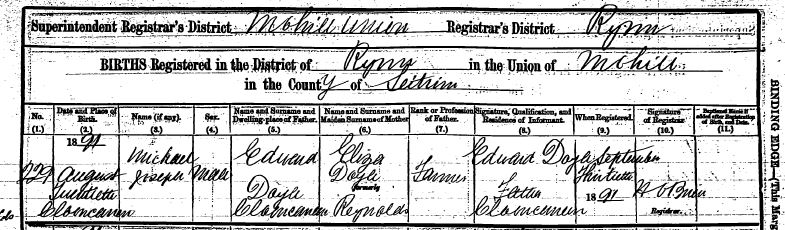 Superintendent Registrar's District Mohill Union Registrar's District Rynn
BIRTHS Registered in the District of Rynn in the Union of Mohill
in the County of Leitrim
No. Date and Place of Birth. Name (if any). Sex. Name and Surname and Dwelling-place of Father. Name and Surname and Maiden Surname of Mother. Rank or Profession of Father. Signature, Qualification, and Residence of Informant. When Registered. Signature of Registrar. Baptismal Name, if added after Registration of Birth, and Date.
(1.) (2.) (3.) (4.) (5.) (6.) (7.) (8.) (9.) (10.) (11.)
1891 Michael Edward Eliza Edward Doyle September
229 August Joseph Male Doyle Farmer Thirtieth
Twentieth Doyle formerly Father 1891 H O'Brien
Clooncarren Clooncarren Reynolds Clooncarren Registrar.
BINDING EDGE—(This Marg